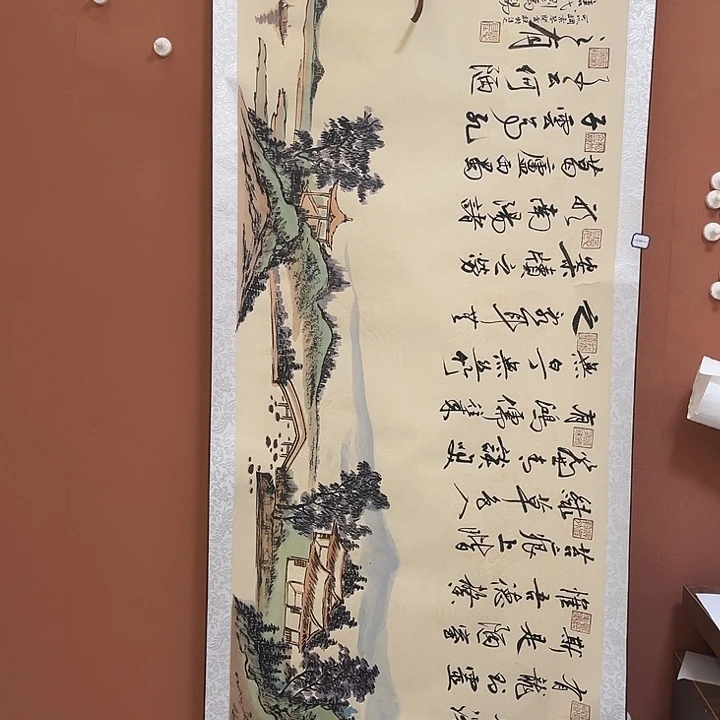 有龍則靈
斯是陋室
惟吾德馨
苔痕上階
綠草色入
簾青談笑
有鴻儒往來
無白丁無絲竹
之亂耳無
案牘之勞
形南陽諸
葛廬西蜀
子雲亭孔
子云何陋
之有